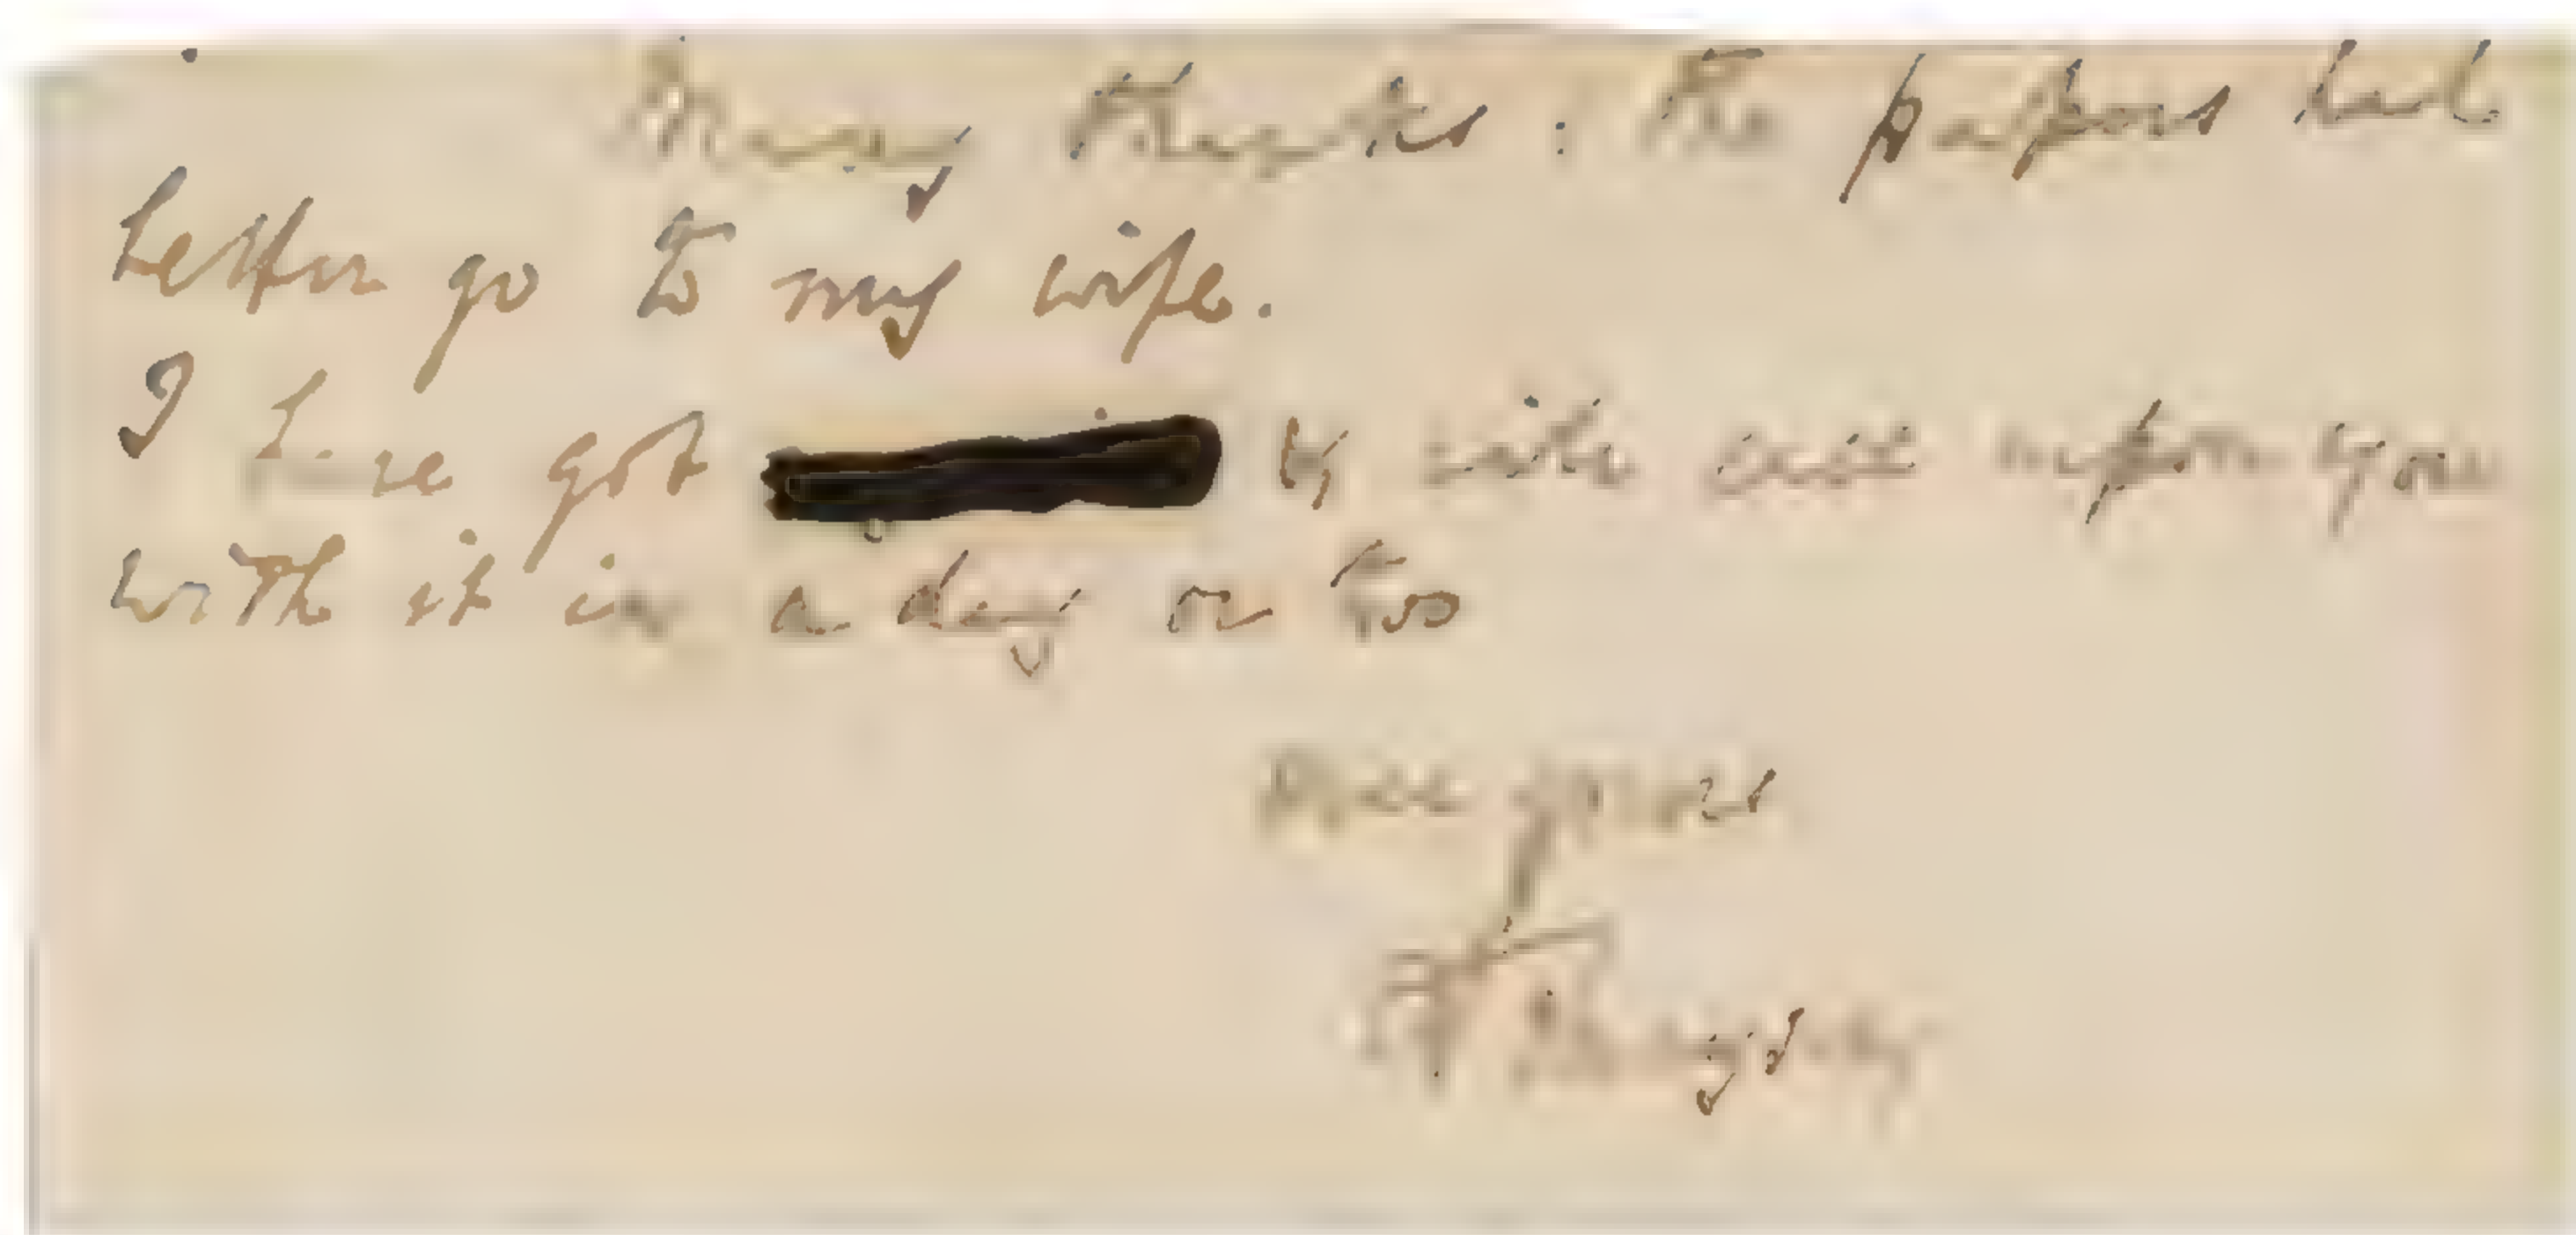 Many thanks: the papers had
better go to my wife.
I have got & will call upon you
with it in a day or two
yours